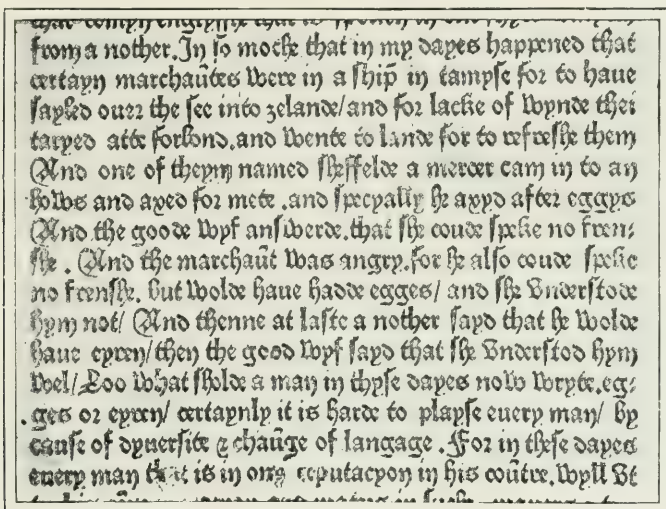 that comyn englyſſhe that is ſpoken in one ſhyre
from a nother. In ſo moche that in my dayes happened that
certayn marchaūtes were in a ſhip̄ in tampſe for to haue
ſayled ouer the ſee into zelande/ and for lacke of wynde thei
taryed atte forlond. and wente to lande for to refreſhe them
And one of theym named ſheffelde a mercer cam in to an
hows and axed for mete. and ſpecyally he axyd after eggys
And the goode wyf anſwerde. that ſhe coude ſpeke no fren-
ſhe. And the marchaūt was angry. for he alſo coude ſpeke
no frenſhe. but wolde haue hadde egges/ and ſhe vnderſtode
hym not/ And thenne at laſte a nother ſayd that he wolde
haue eyren/ then the good wyf ſayd that ſhe vnderſtod hym
wel/ Loo what ſholde a man in thyſe dayes now wryte. eg-
ges or eyren/ certaynly it is harde to playſe euery man/ by
cauſe of dyuerſite ⁊ chaūge of langage. For in theſe dayes
euery man that is in ony reputacyon in his coūtre. wyll vt